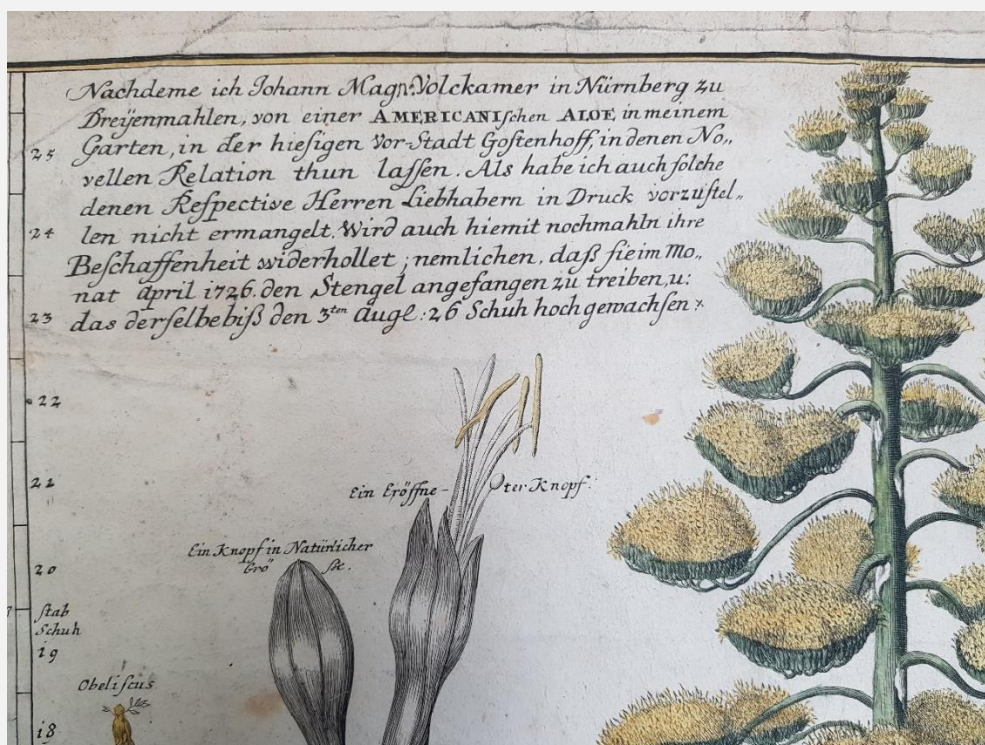 Nachdeme ich Johann Magn: Volckamer in Nürnberg zu
Dreÿenmahlen, von einer AMERICANIſchen ALOE in meinem
Garten, in der hieſigen Vor-Stadt Goſtenhoff, in denen No„
vellen Relation thun laſſen. Als habe ich auch ſolche
denen Reſpective Herren Liebhabern in Druck vorzuſtel„
len nicht ermangelt. Wird auch hiemit nochmahln ihre
Beſchaffenheit widerhollet; nemlichen, daß ſie im Mo„
nat April 1726. den Stengel angefangen zu treiben, u:
das derſelbe biß den 3ten Augl: 26 Schuh hoch gewachſen
25
24
23
22
21
Ein Eröffne-
ter Knopf.
Ein Knopf in Natürlicher
Grö ſſe.
20
ſtab
Schuh
19
Obeliſcus
18